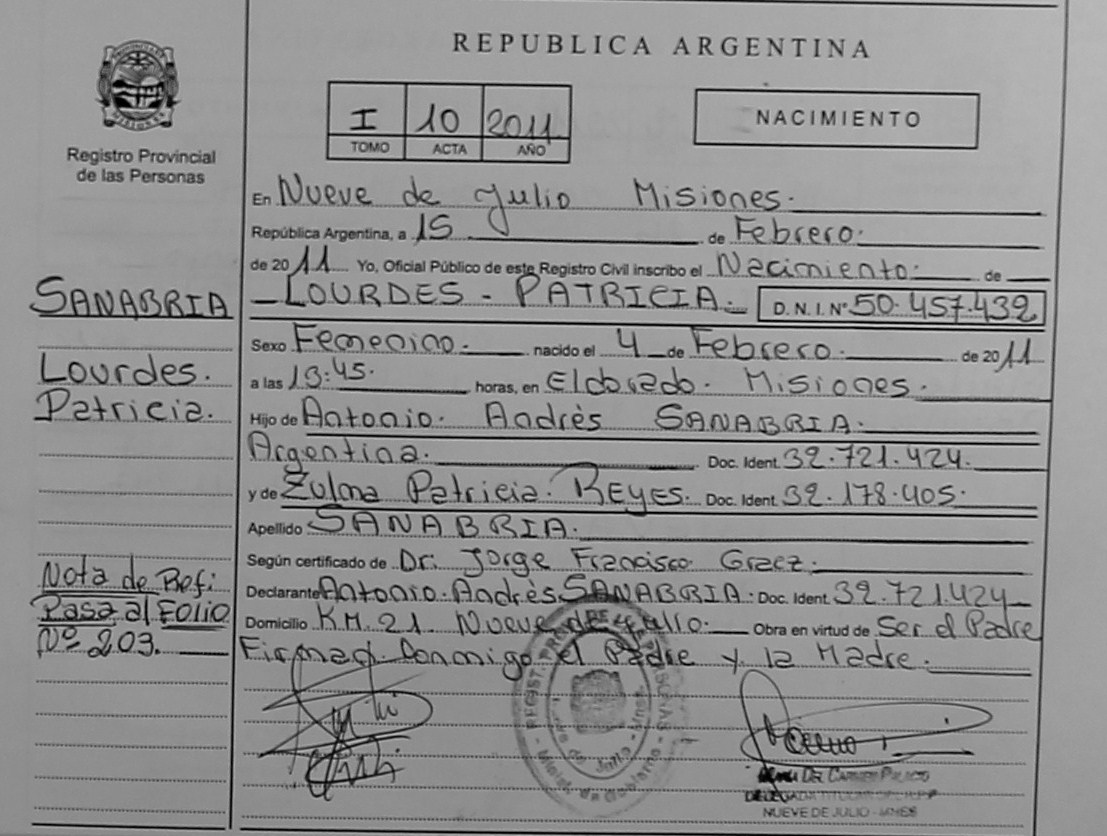 REPUBLICA ARGENTINA
PROVINCIA DE MISIONES
Registro Provincial
de las Personas
I 10 2011
TOMO ACTA AÑO
NACIMIENTO
En Nueve de Julio Misiones.
República Argentina, a 15 de Febrero.
de 2011 Yo, Oficial Público de este Registro Civil inscribo el Nacimiento. de
LOURDES - PATRICIA. D.N.I. Nº 50.457.432
Sexo Femenino. nacido el 4 de Febrero. de 2011
a las 13:45. horas, en Eldorado. Misiones.
Hijo de Antonio. Andrés SANABRIA.
Argentina. Doc. Ident. 32.721.424.
y de Zulma Patricia. REYES. Doc. Ident. 32.178.405.
Apellido SANABRIA.
Según certificado de Dr. Jorge Francisco
Declarante Antonio. Andrés SANABRIA. Doc. Ident. 32.721.424
Domicilio KM. 21 Nueve de Julio. Obra en virtud de Ser el Padre
Firman Conmigo el Padre y la Madre.
SANABRIA
Lourdes.
Patricia.
Nota de Ref:
Pasa al Folio
Nº 203.
DEL CARMEN
DELEGADA TITULAR
NUEVE DE JULIO - MNES